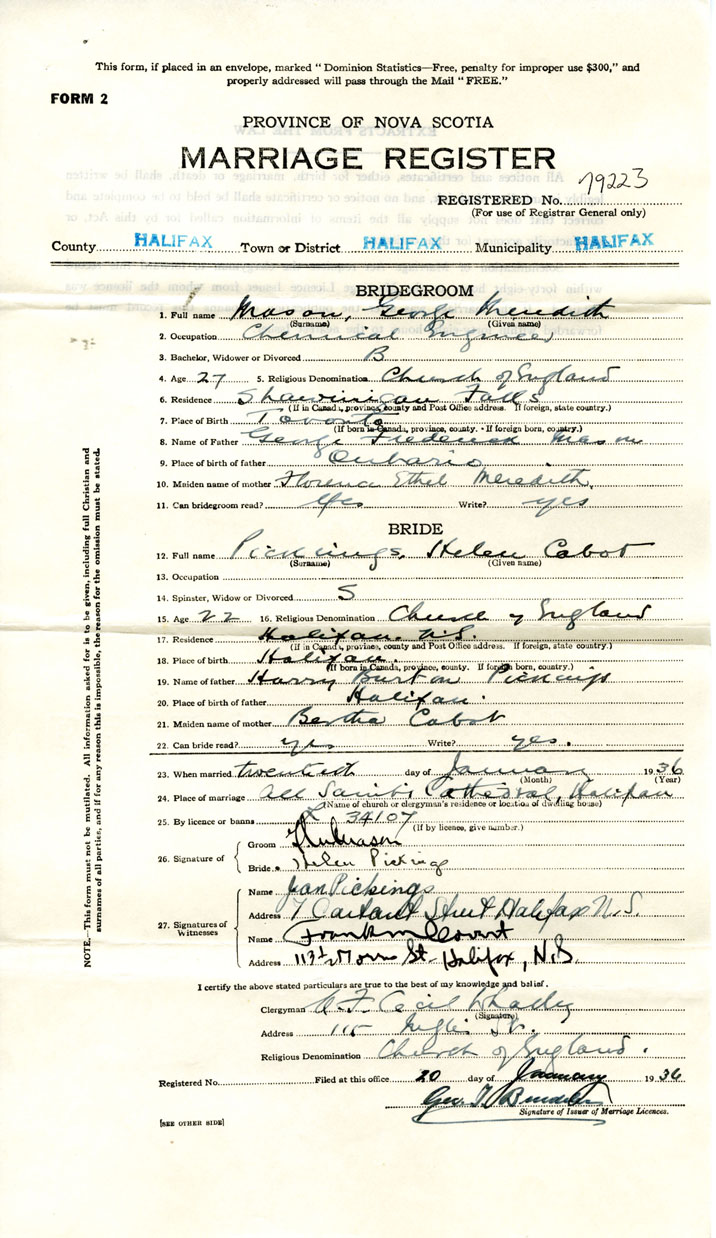 This form, if placed in an envelope, marked " Dominion Statistics—Free, penalty for improper use $300," and
properly addressed will pass through the Mail " FREE."
FORM 2
PROVINCE OF NOVA SCOTIA
MARRIAGE REGISTER
REGISTERED No. 79223
(For use of Registrar General only)
County HALIFAX Town or District HALIFAX Municipality HALIFAX
BRIDEGROOM
1. Full name Mason, George Meredith
(Surname) (Given name)
2. Occupation Chemical Engineer
3. Bachelor, Widower or Divorced B
4. Age 27 5. Religious Denomination Church of England
6. Residence Shawinigan Falls
(If in Canada, province, county and Post Office address. If foreign, state country.)
7. Place of Birth Toronto
(If born in Canada, province, county. - If foreign born, country.)
8. Name of Father George Frederick Mason
9. Place of birth of father Ontario
10. Maiden name of mother Florence Ethel Meredith
11. Can bridegroom read? Yes Write? yes
BRIDE
12. Full name Pickings, Helen Cabot
(Surname) (Given name)
13. Occupation
14. Spinster, Widow or Divorced S
15. Age 22 16. Religious Denomination Church of England
17. Residence Halifax. N.S.
(If in Canada, province, county and Post Office address. If foreign, state country.)
18. Place of birth Halifax.
(If born in Canada, province, county. If foreign born, country.)
19. Name of father Harry Burton Pickings
20. Place of birth of father Halifax.
21. Maiden name of mother Bertha Cabot
22. Can bride read? yes Write? yes.
23. When married twentieth day of January 1936
(Month) (Year)
24. Place of marriage All Saints Cathedral, Halifax
(Name of church or clergyman's residence or location of dwelling house)
25. By licence or banns L 34107
(If by licence, give number.)
26. Signature of
Groom
Bride Helen Pickings
27. Signatures of Witnesses
Name Jean Pickings
Address 7 Street Halifax N.S.
Name Frank
Address St. Halifax, N.S.
I certify the above stated particulars are true to the best of my knowledge and belief.
Clergyman Cecil
(Signature)
Address 115 Inglis St.
Religious Denomination Church of England.
Registered No. Filed at this office 20 day of January 1936
Geo.
Signature of Issuer of Marriage Licences.
[SEE OTHER SIDE]
NOTE.—This form must not be mutilated. All information asked for is to be given, including full Christian and
surnames of all parties, and if for any reason this is impossible, the reason for the omission must be stated.